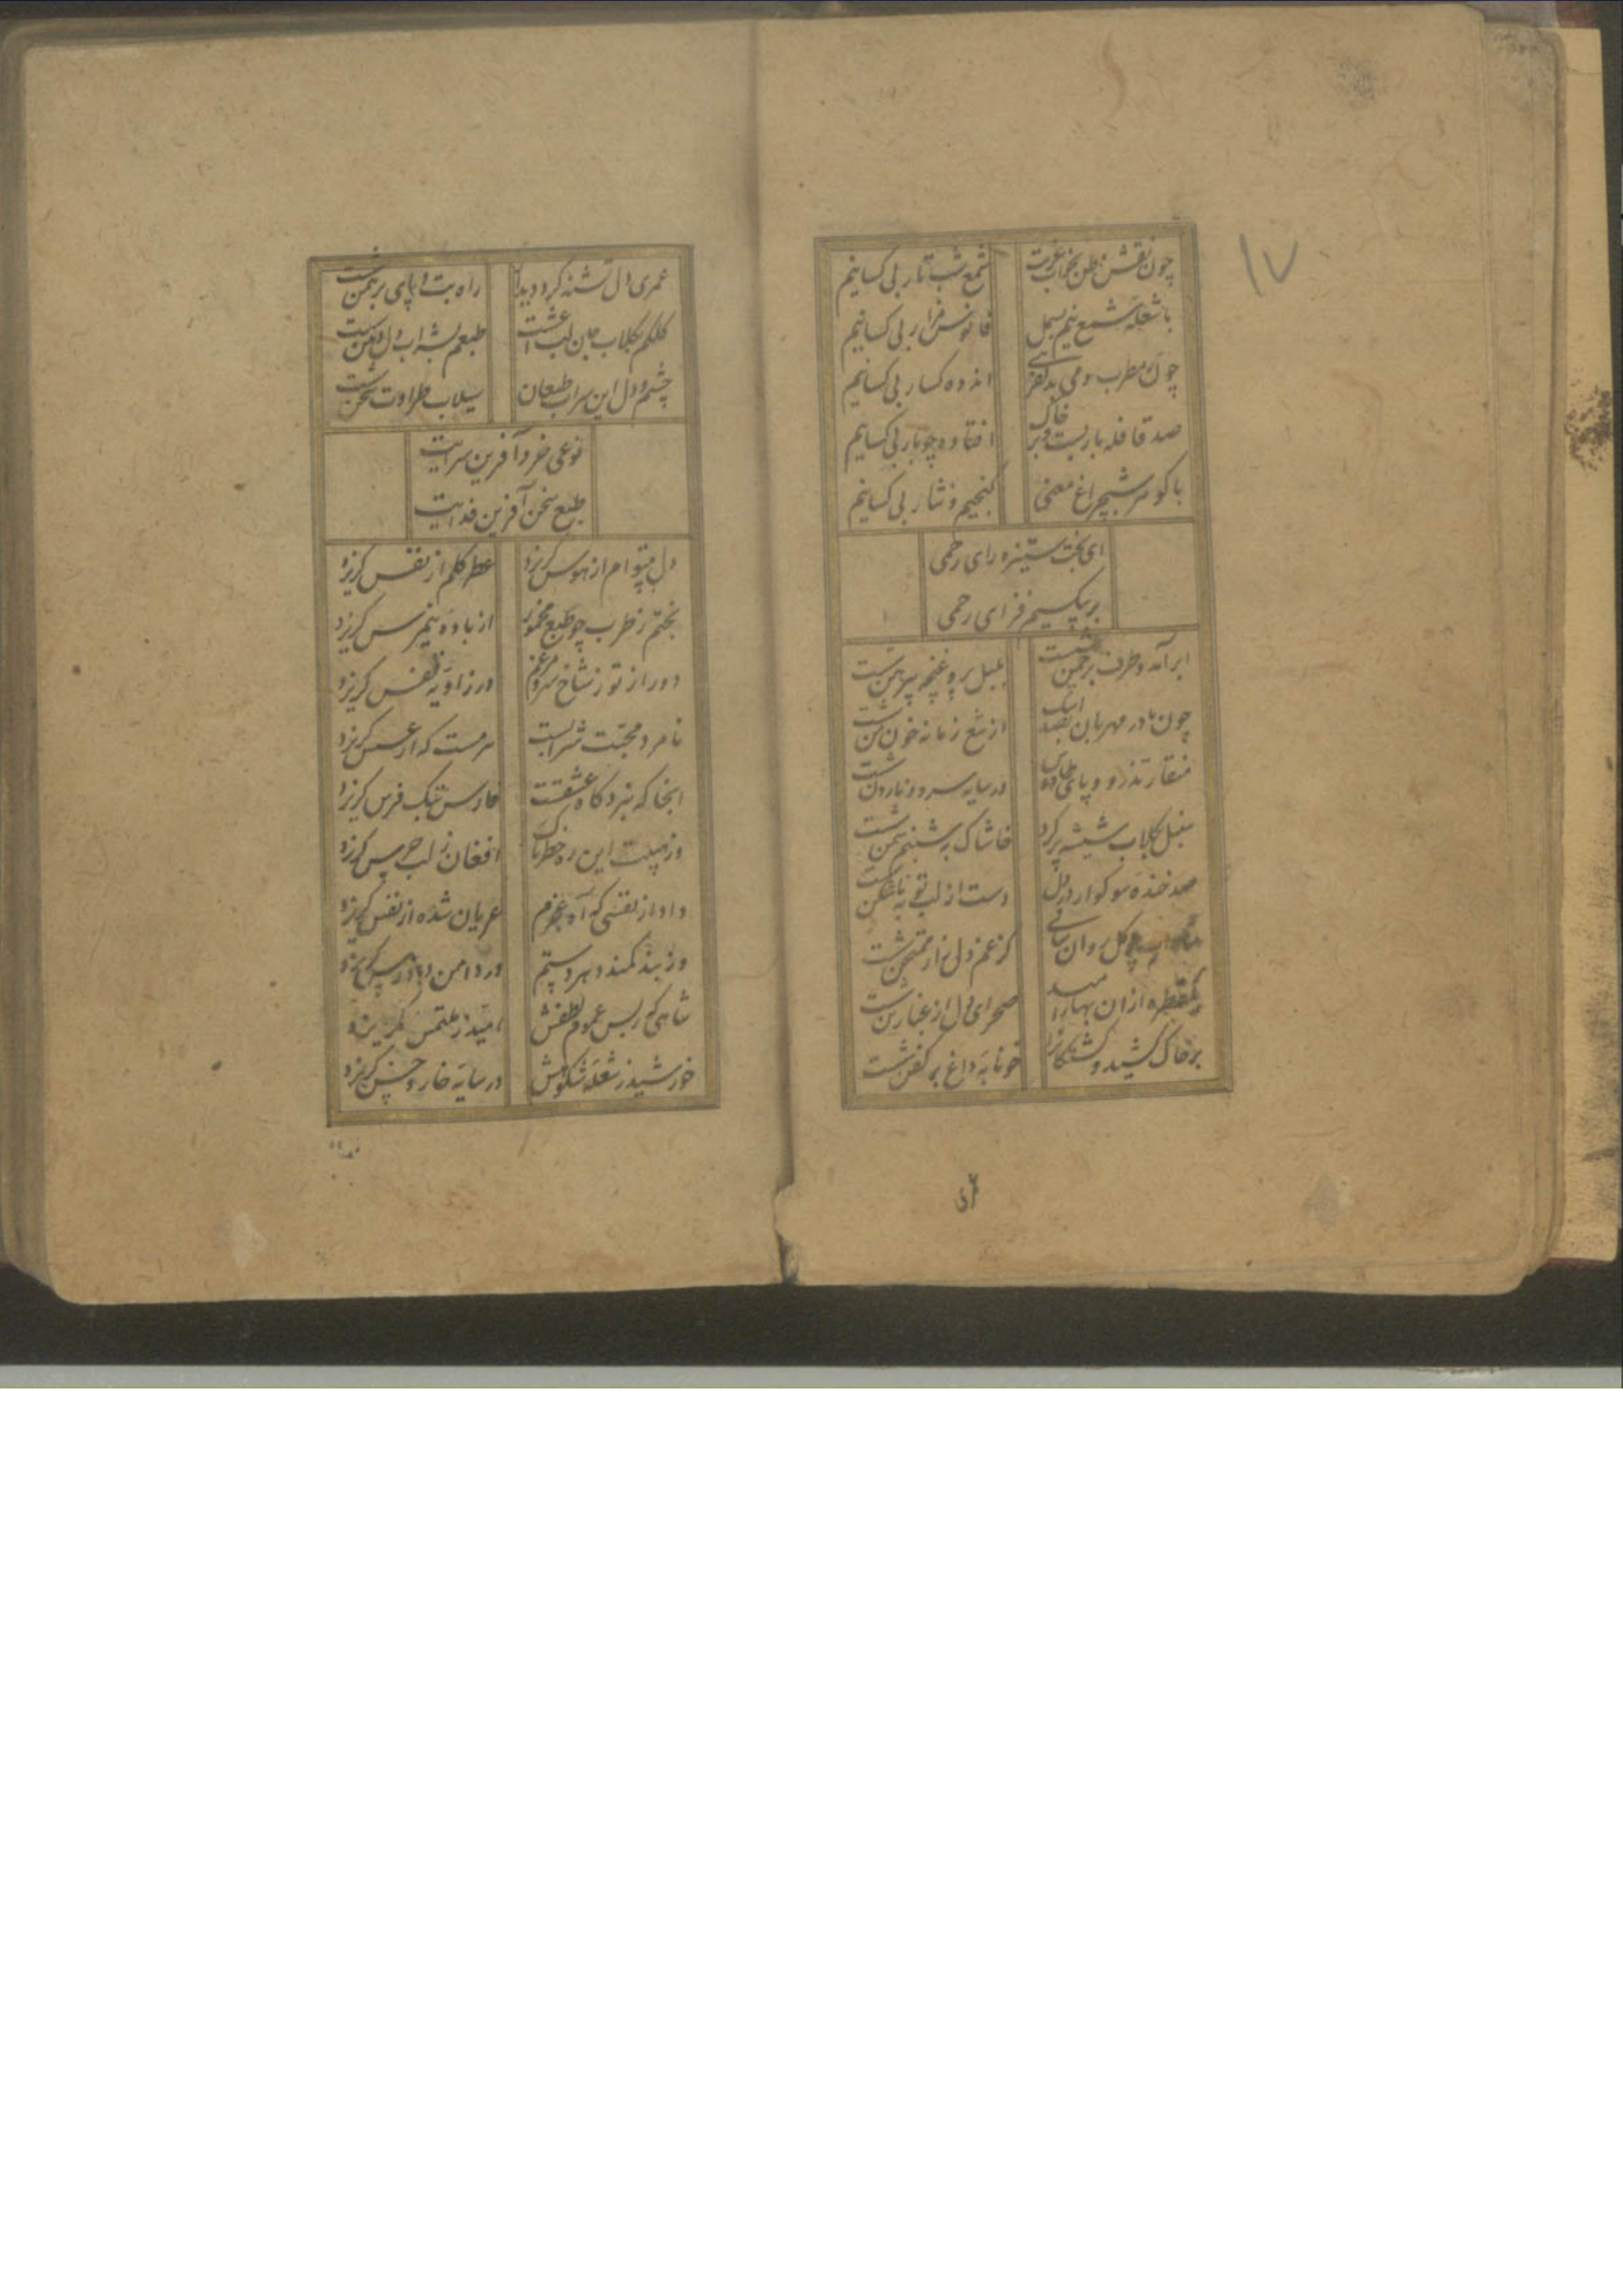 ۱۷
چون نقش وطن بخواب غربت
شمع شب تار بی کسانیم
با شعله شمع نیم بسمل
فانوس مزار بی کسانیم
چون مطرب و می
اندوه کسار بی کسانیم
صد قافله بار بست و بر خاک
افتاده چو بار بی کسانیم
با کوهر شبچراغ معنی
کنجیم و نثار بی کسانیم
ای بخت ستیزه رای رحمی
بر بیکسیم فزای رحمی
ابر آمد و طرف بر چمن شست
بلبل پر و غنچه پیرهن شست
چون مادر مهربان بصد اشک
از تیغ زمانه خون من شست
منقار تذرو و پای طاوس
در سایه سرو و نارون شست
سنبل بکلاب شیشه پر کرد
خاشاک به شبنم سمن شست
صد خنده سوکوار در دل
دست از لب توبه شکن شست
کل روان ساقی
کز غم دل زار ممتحن شست
یکقطره ازان بهار امید
صحرای دل از غبار من شست
بر خاک کشید و کشتکانرا
خونابه داغ بر کفن شست
عمری دل تشنه کرد دیدار
راه بت و پای برهمن شست
کلکم بکلاب جان لب
طبعم بشراب دل دهن شست
چشم و دل این سراب طبعان
سیلاب طراوت سخن شست
نوعی خرد آفرین سرایت
طبع سخن آفرین فدایت
دل بیتوام از هوس کریزد
عطر کلم از نفس کریزد
بختم ز طرب چو طبع مخمور
از باده نیمرس کریزد
دور از تو ز شاخ سرو مرغم
در زاویه قفس کریزد
نامرد محبت شرابست
سرمست که از عسس کریزد
انجا که نبرد کاه عشقست
فارس تنک فرس کریزد
وز هیبت این ره خطرناک
افغان ز لب جرس کریزد
داد از نفسی که آه عجزم
عریان شده از نفس کریزد
وز بند کمند دهر و ستم
در دامن دادرس کریزد
شاهی که ز بس عموم لطفش
امید ز ملتمس کریزد
خورشید ز شعله شکوهش
در سایه خار و خس کریزد